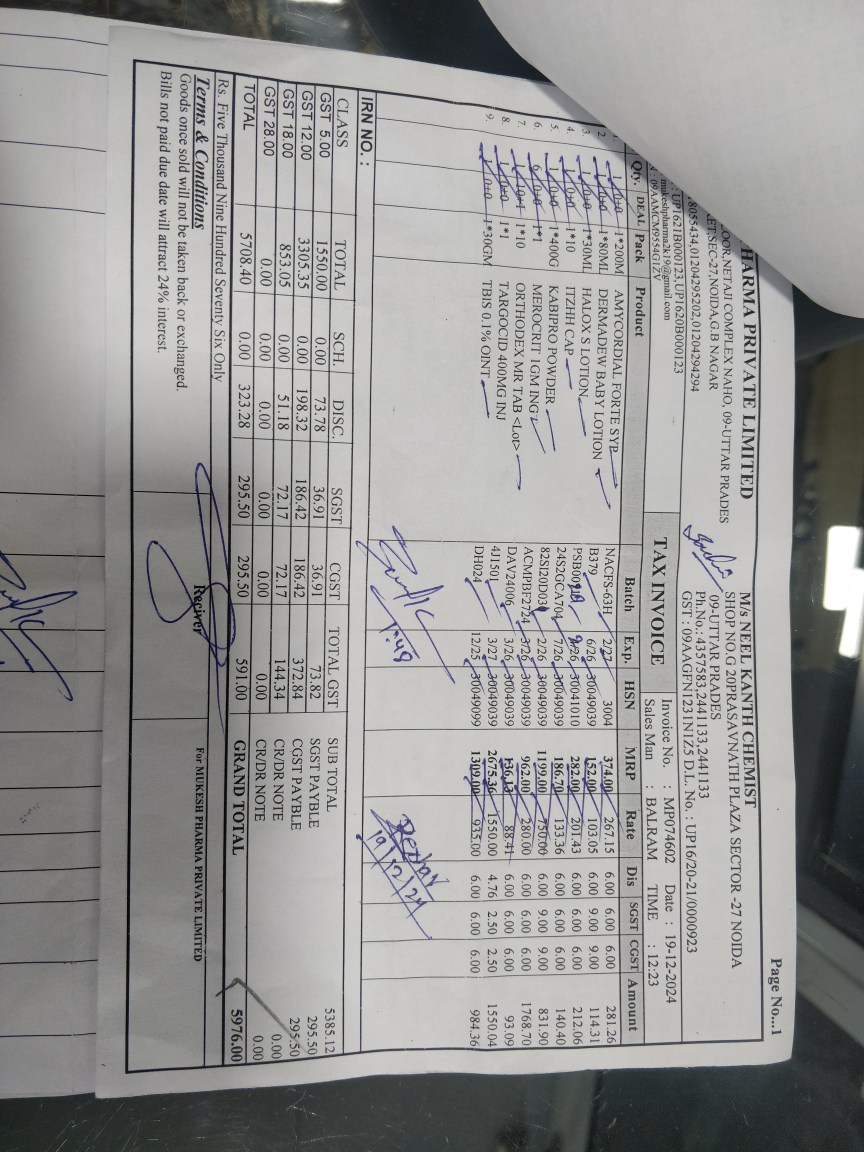 HARMA PRIVATE LIMITED
OOR,NETAJI COMPLEX NAHO, 09-UTTAR PRADES
ET,SEC-27,NOIDA,G.B NAGAR
8055434,01204295202,01204294294
: UP1621B000123,UP1620B000123
mukeshpharma2k19@gmail.com
: 09AAMCM9554G1ZV
Page No...1
M/s NEEL KANTH CHEMIST
SHOP NO.G 20PRASAVNATH PLAZA SECTOR -27 NOIDA
09-UTTAR PRADES
Ph.No.: 4357583,2441133,2441133
GST : 09AAGFN1231N1Z5 D.L. No. : UP16/20-21/0000923
TAX INVOICE
Invoice No. : MP074602 Date : 19-12-2024
Sales Man : BALRAM TIME : 12:23
Qty. DEAL Pack Product Batch Exp. HSN MRP Rate Dis SGST CGST Amount
1 0+0 1*200M AMYCORDIAL FORTE SYP NACFS-63H 2/27 3004 374.00 267.15 6.00 6.00 6.00 281.26
2 1 0+0 1*80ML DERMADEW BABY LOTION B379 6/26 30049039 152.00 103.05 6.00 9.00 9.00 114.31
3. 1 0+0 1*30ML HALOX S LOTION 30041010 282.00 201.43 6.00 6.00 6.00 212.06
4. 1 0+0 1*10 ITZHH CAP 24S2GCA704 7/26 30049039 186.70 133.36 6.00 6.00 6.00 140.40
5. 1 0+0 1*400G KABIPRO POWDER 82SI20D03 2/26 30049039 1199.00 750.00 6.00 9.00 9.00 831.90
6. 6 0+0 1*1 MEROCRIT 1GM ING ACMPBF2724 3/26 30049039 962.00 280.00 6.00 6.00 6.00 1768.70
7. 1 10+1 1*10 ORTHODEX MR TAB <Lot> DAV24006 3/26 30049039 136.13 88.41 6.00 6.00 6.00 93.09
8. 1 0+0 1*1 TARGOCID 400MG INJ 4J1501 3/27 30049039 2675.36 1550.00 4.76 2.50 2.50 1550.04
9. 1 0+0 1*30GM TBIS 0.1% OINT DH024 12/25 30049099 1309.00 935.00 6.00 6.00 6.00 984.36
1:48
19/12/24
IRN NO. :
CLASS TOTAL SCH. DISC. SGST CGST TOTAL GST
GST 5.00 1550.00 0.00 73.78 36.91 36.91 73.82
GST 12.00 3305.35 0.00 198.32 186.42 186.42 372.84
GST 18.00 853.05 0.00 51.18 72.17 72.17 144.34
GST 28.00 0.00 0.00 0.00 0.00 0.00 0.00
TOTAL 5708.40 0.00 323.28 295.50 295.50 591.00
SUB TOTAL 5385.12
SGST PAYBLE 295.50
CGST PAYBLE 295.50
CR/DR NOTE 0.00
CR/DR NOTE 0.00
GRAND TOTAL 5976.00
Rs. Five Thousand Nine Hundred Seventy Six Only
Terms & Conditions
Goods once sold will not be taken back or exchanged.
Bills not paid due date will attract 24% interest.
Reciver
For MUKESH PHARMA PRIVATE LIMITED